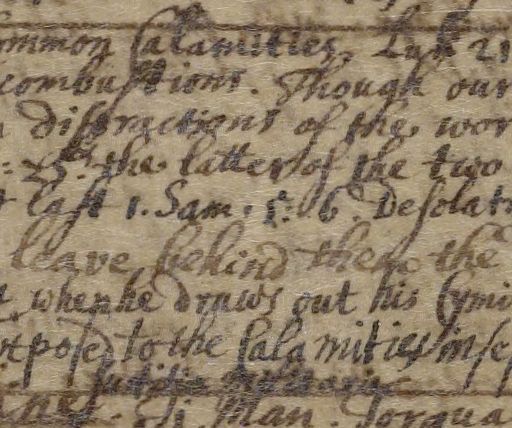 ommon Calamities. Luk 21
combustions. Though our
distractions of the wor
the latter of the two
last 1. Sam. 5. 6. Desolat
leave behind them the
when he draws out his
pose to the Calamities
Man. Torqua